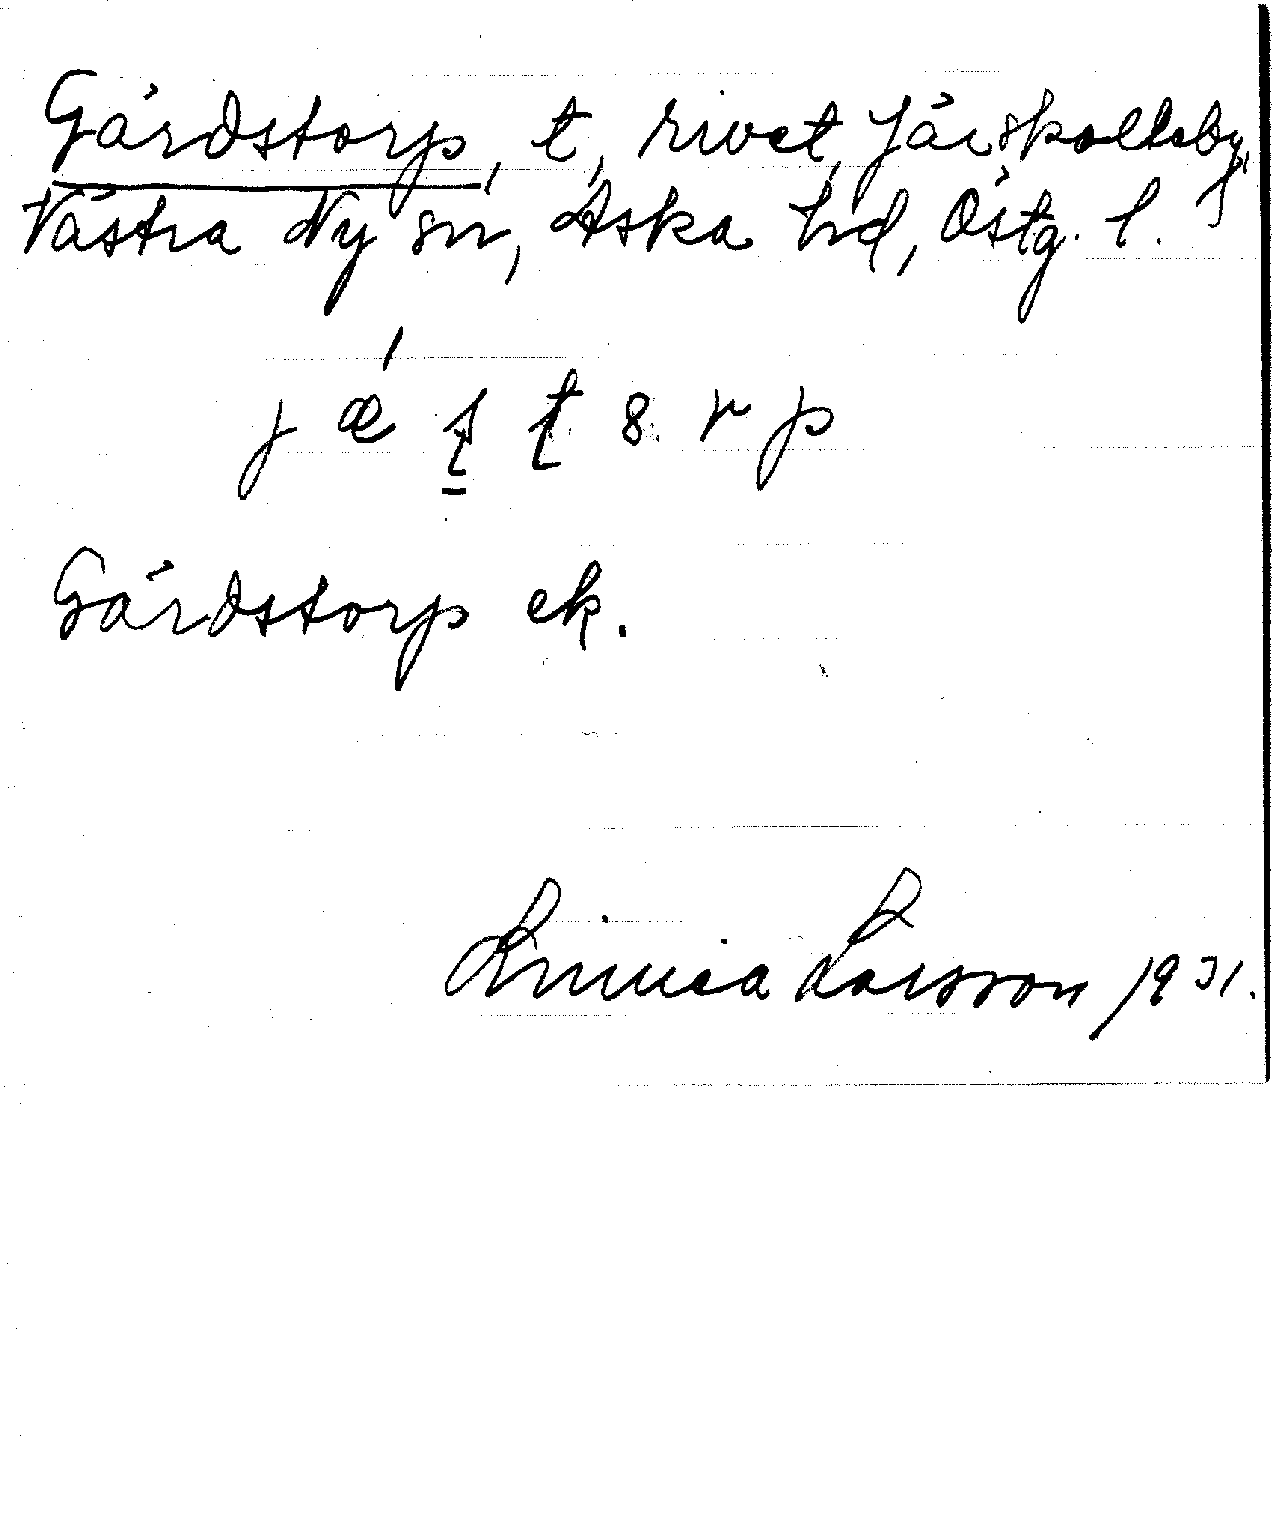 Gärdstorp, t, rivet, Järskolleby,
Västra Ny sn, Aska hd, Östg. l.
Gärdstorp ek.
Linnea Larsson 1931.